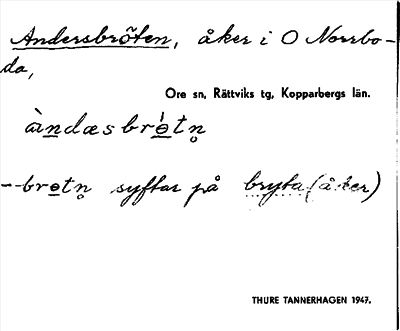 Andersbröten, åker i O Norrbo-
da,
Ore sn, Rättviks tg, Kopparbergs län.
àndæsbró̲tn̥
--bro̲tn̥ syftar på bryta (åker)
THURE TANNERHAGEN 1947.